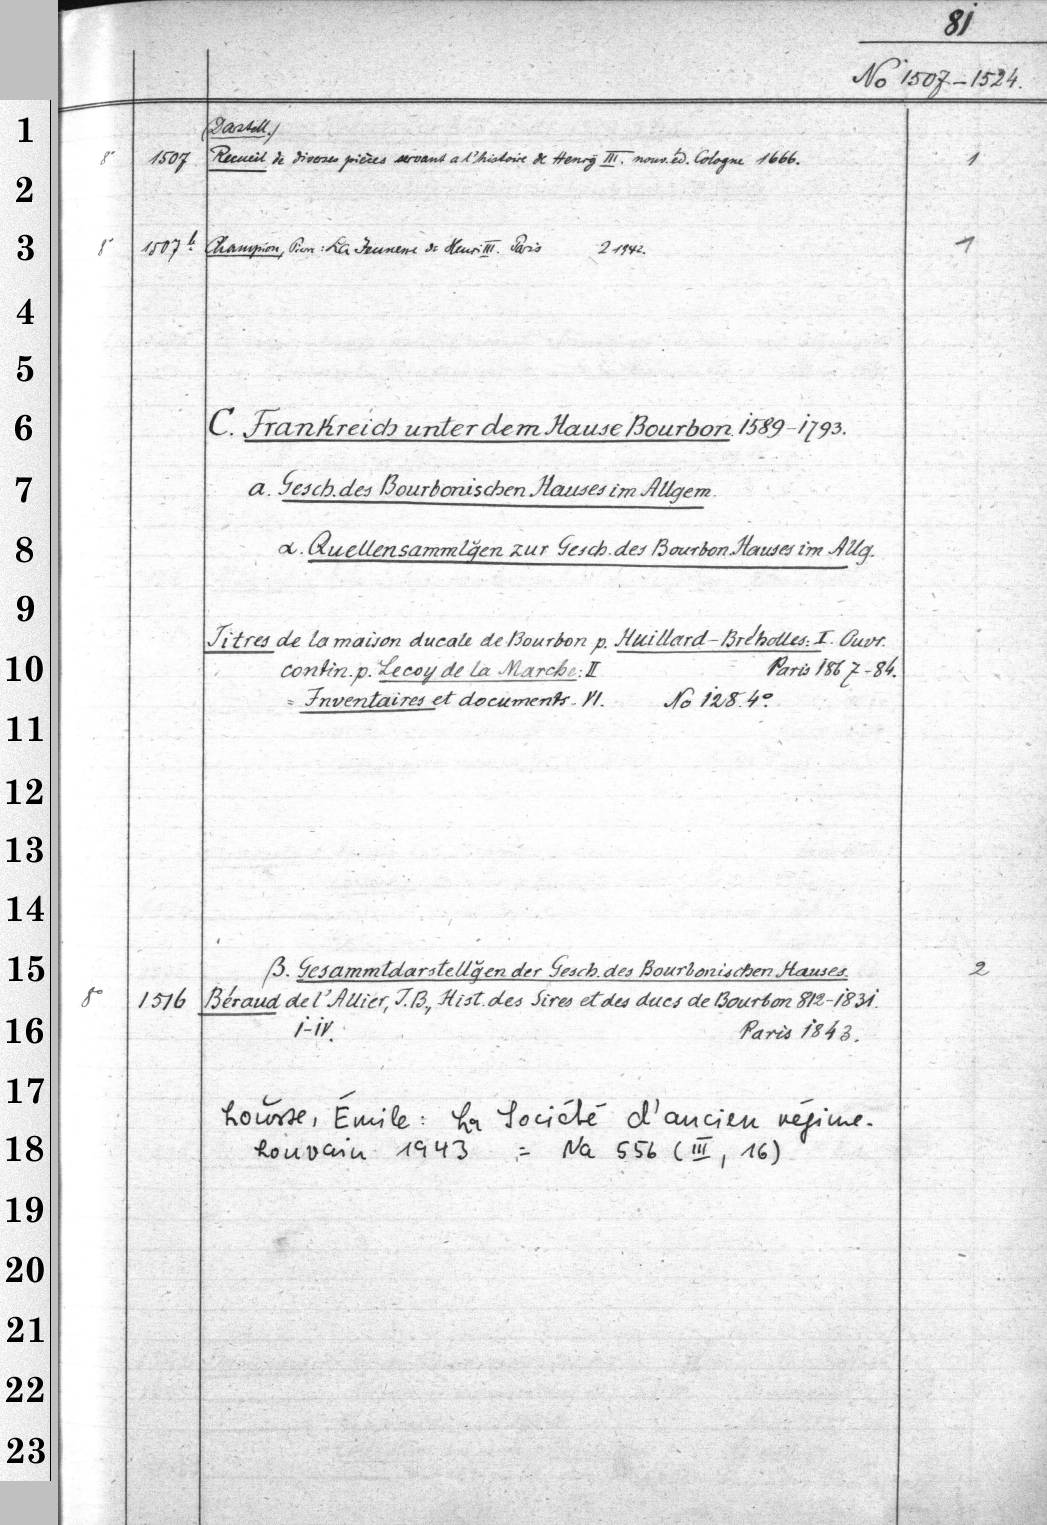 81
No 1507-1524.
1
(Darstell.)
8° 1507 Recueil de diverses pièces servant a l'histoire de Henry III. nouv. éd. Cologne 1666. 1
2
3
8° 1507 b. Champion, Pierre: La Jeunesse de Henri III. Paris 2 1942. 1
4
5
6
C. Frankreich unter dem Hause Bourbon. 1589-1793.
7
a. Gesch. des Bourbonischen Hauses im Allgem.
8
α. Quellensammlg̃en zur Gesch. des Bourbon. Hauses im Allg.
9
Titres de la maison ducale de Bourbon p. Huillard-Bréholles: I. Ouvr.
10
contin. p. Lecoy de la Marche: II Paris 1867-84.
= Inventaires et documents. VI. No 128. 4°
11
12
13
14
15
β. Gesammtdarstellg̃en der Gesch. des Bourbonischen Hauses. 2
8° 1516 Béraud de l'Allier, J.B., Hist. des Sires et des ducs de Bourbon 812-1831.
16
I-IV. Paris 1843.
17
Lousse, Émile: La Société d'ancien régime.
18
Louvain 1943 = Na 556 (III, 16)
19
20
21
22
23